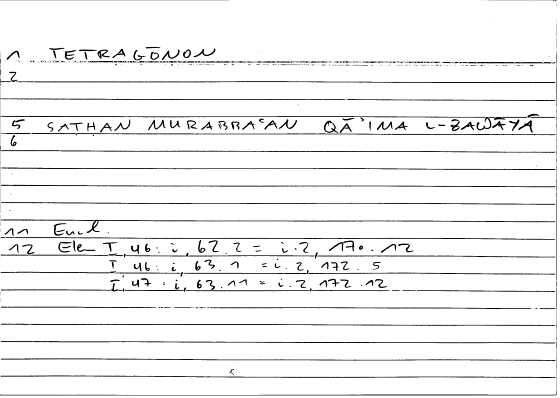 1 TETRAGŌNON
2
5 SATHAN MURABBAʿAN QĀʾIMA L-ZAWĀYĀ
6
11 Eucl.
12 Elem I, 46 : i, 62.2 = i.2, 170.12
I, 46 : i, 63.1 = i.2, 172.5
I, 47 : i, 63.11 = i.2, 172.12